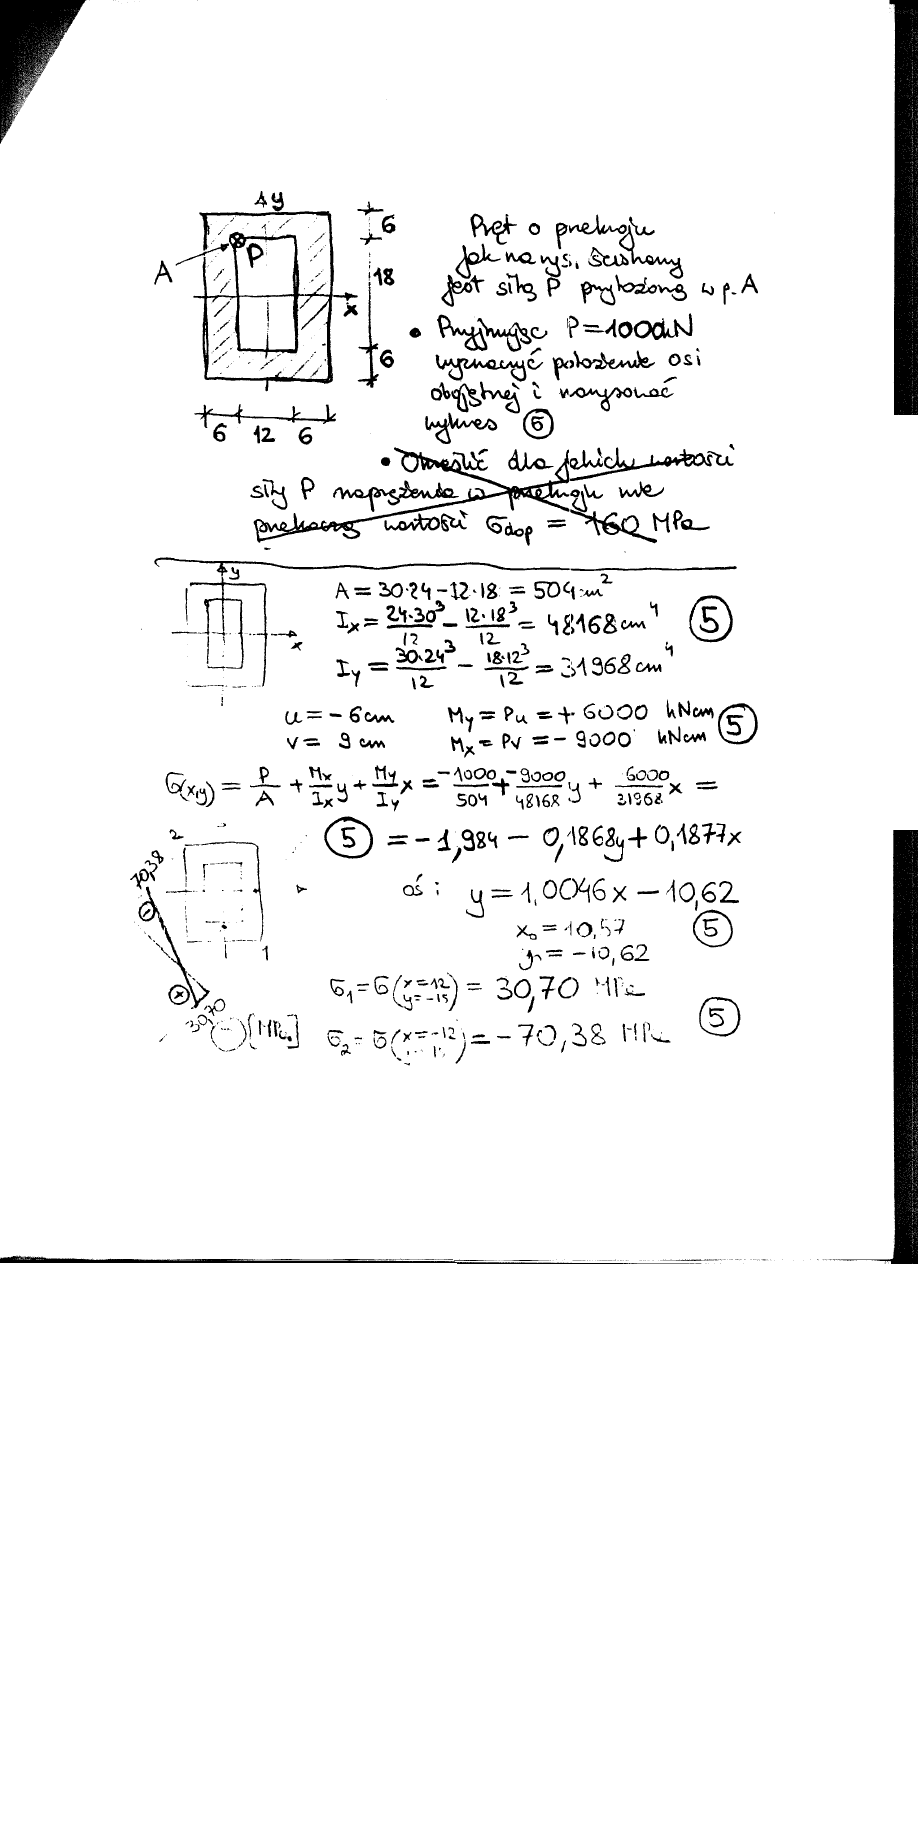 y
6
18
6
A
P
x
6 12 6
Pręt o przekroju
jak na rys. ściskany
jest siłą P przyłożoną w p. A
• Przyjmując P=1000kN
wyznaczyć położenie osi
obojętnej i narysować
wykres 6
• Określić dla jakich wartości
siły P naprężenia w przekroju nie
przekroczą wartości σdop = 160 MPa
y
x
A = 30·24 – 12·18 = 504 cm²
Ix = 24·30³/12 – 12·18³/12 = 48168 cm⁴
5
Iy = 30·24³/12 – 18·12³/12 = 31968 cm⁴
u = -6cm My = Pu = + 6000 kNcm
v = 9 cm Mx = Pv = - 9000 kNcm
5
σ(x,y) = P/A + Mx/Ix y + My/Iy x = -1000/504 + -9000/48168 y + 6000/31968 x =
5 = -1,984 – 0,1868y + 0,1877x
2
70,38
oś: y = 1,0046x – 10,62
x₀ = 10,57
5
= -10,62
1
σ₁ = σ(x=12 y=-15) = 30,70 MPa
30,70
[MPa]
5
σ₂ = σ(x=-12) = -70,38 MPa